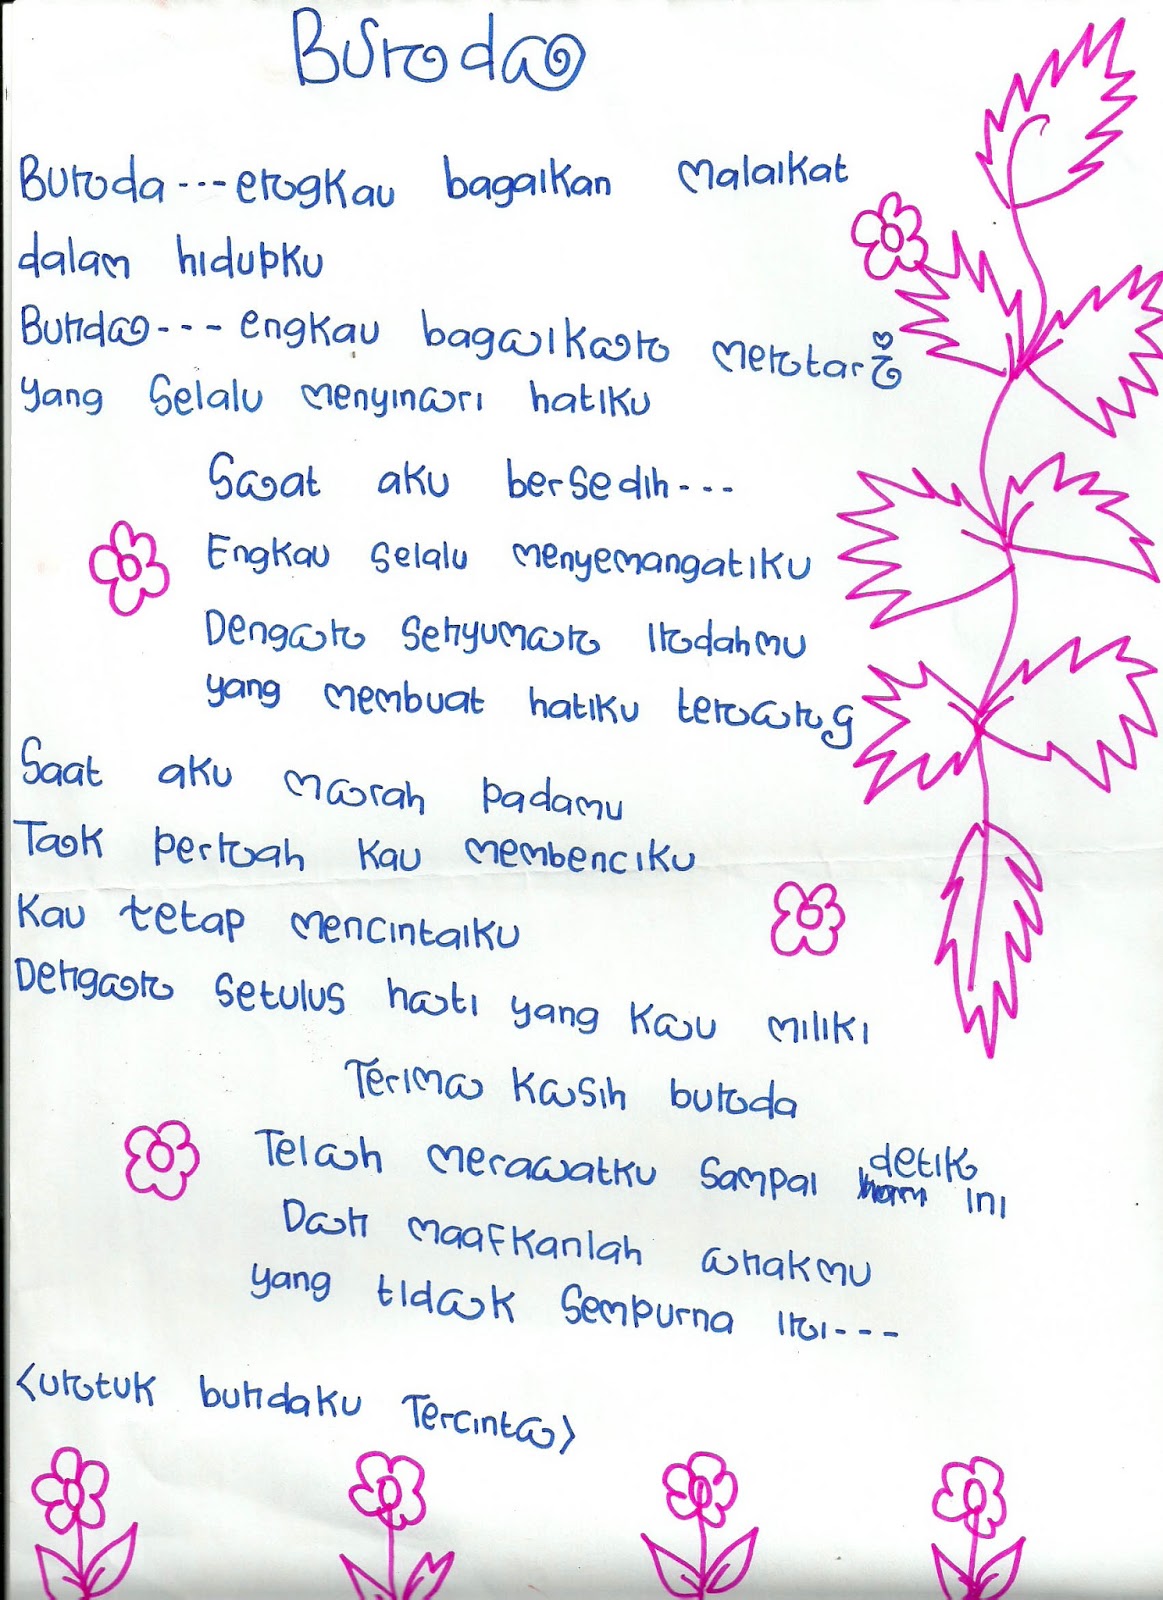 Bunda
Bunda---engkau bagaikan malaikat
dalam hidupku
Bunda---engkau bagaikan mentari
yang selalu menyinari hatiku
Saat aku bersedih---
Engkau selalu menyemangatiku
Dengan senyuman indahmu
yang membuat hatiku tenang
Saat aku marah padamu
Tak pernah kau membenciku
Kau tetap mencintaiku
Dengan setulus hati yang kau miliki
Terima kasih bunda
Telah merawatku sampai detik ini
Dan maafkanlah anakmu
yang tidak sempurna ini---
<untuk bundaku Tercinta>